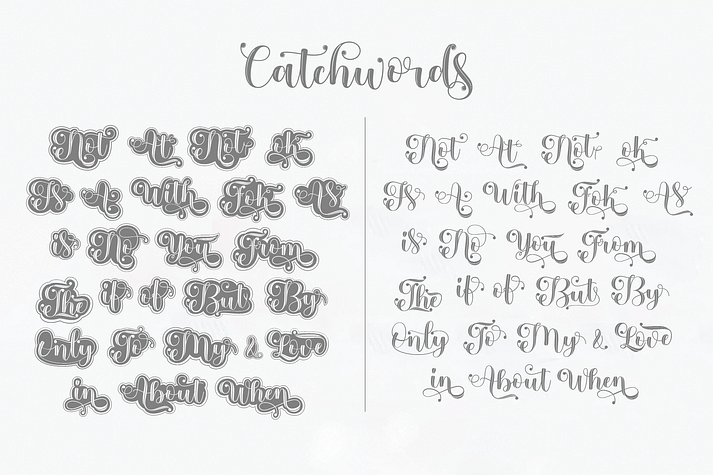 Catchwords
Not At Not ok
Is A With Fok AS
is No You From
The if of But By
Only To My & Love
in About When
Not At Not ok
Is A With Fok AS
is No You From
The if of But By
Only To My & Love
in About When